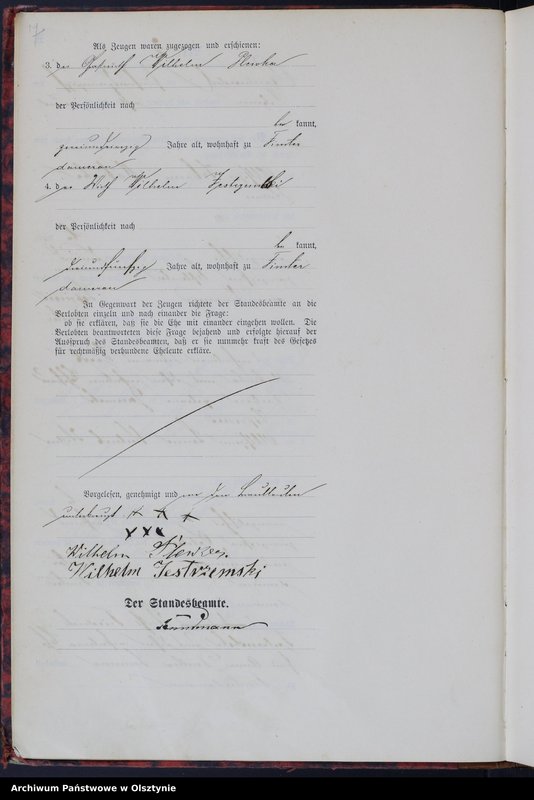 Als Zeugen waren zugezogen und erschienen:
3. der Wilhelm
der Persönlichkeit nach
be kannt,
Jahre alt, wohnhaft zu Finster
damerau
4. der Wilhelm Jestrzemski
der Persönlichkeit nach
be kannt,
Jahre alt, wohnhaft zu Finster
damerau
In Gegenwart der Zeugen richtete der Standesbeamte an die
Verlobten einzeln und nach einander die Frage:
ob sie erklären, daß sie die Ehe mit einander eingehen wollen. Die
Verlobten beantworteten diese Frage bejahend und erfolgte hierauf der
Ausspruch des Standesbeamten, daß er sie nunmehr kraft des Gesetzes
für rechtmäßig verbundene Eheleute erkläre.
Vorgelesen, genehmigt und von den Brautleuten
unterkreuzt + + +
x x x
Wilhelm
Wilhelm Jestrzemski
Der Standesbeamte.
Archiwum Państwowe w Olsztynie